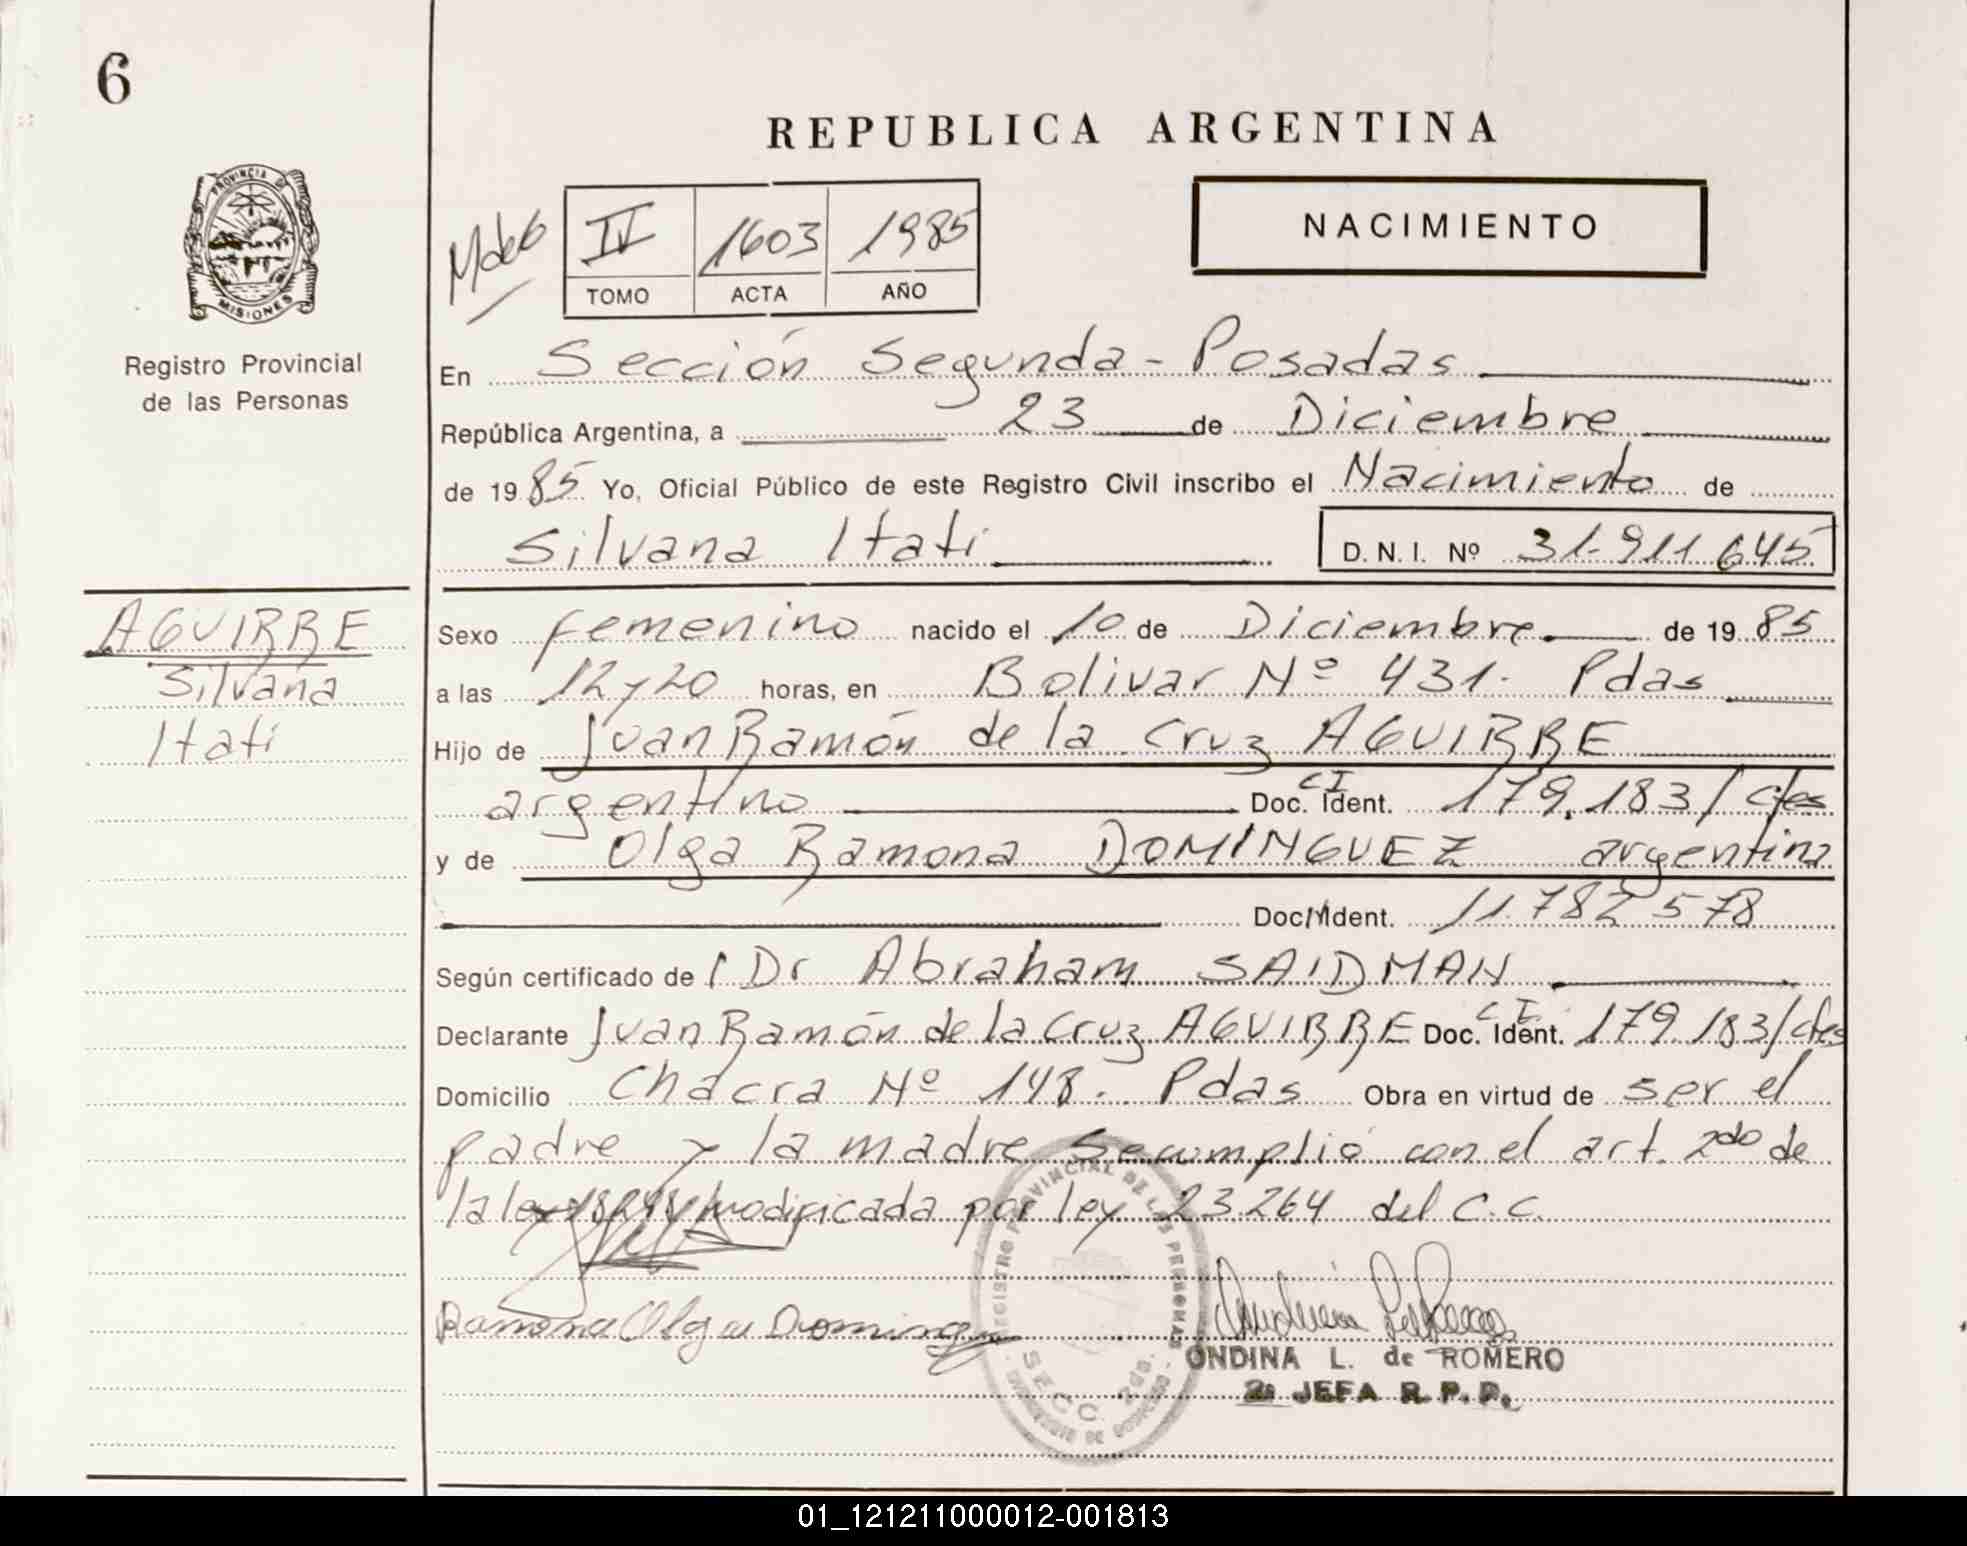 6
REPUBLICA ARGENTINA
PROVINCIA DE
MISIONES
Registro Provincial
de las Personas
IV 1603 1985
TOMO ACTA AÑO
NACIMIENTO
En Sección Segunda - Posadas
República Argentina, a 23 de Diciembre
de 1985 Yo, Oficial Público de este Registro Civil inscribo el Nacimiento de
Silvana Itatí D. N. I. Nº 31.911.645
AGUIRRE
Silvana
Itatí
Sexo femenino nacido el 10 de Diciembre de 1985
a las 12 y 20 horas, en Bolivar Nº 431. Pdas
Hijo de Juan Ramón de la Cruz AGUIRRE
argentino Doc. Ident. CI 179.183/ctes
y de Olga Ramona DOMINGUEZ argentina
Doc. Ident. 11.782.578
Según certificado de Dr Abraham SAIDMAN
Declarante Juan Ramón de la Cruz AGUIRRE Doc. Ident. CI 179.183/ctes
Domicilio Chacra Nº 148. Pdas Obra en virtud de ser el
padre y la madre se cumplió con el art. 2do de
la ley modificada por ley 23.264 del C.C.
Ramona Olga Doming
REGISTRO PROVINCIAL DE LAS PERSONAS
SECC. 2da.
ONDINA L. de ROMERO
2a JEFA R. P. P.
01_121211000012-001813